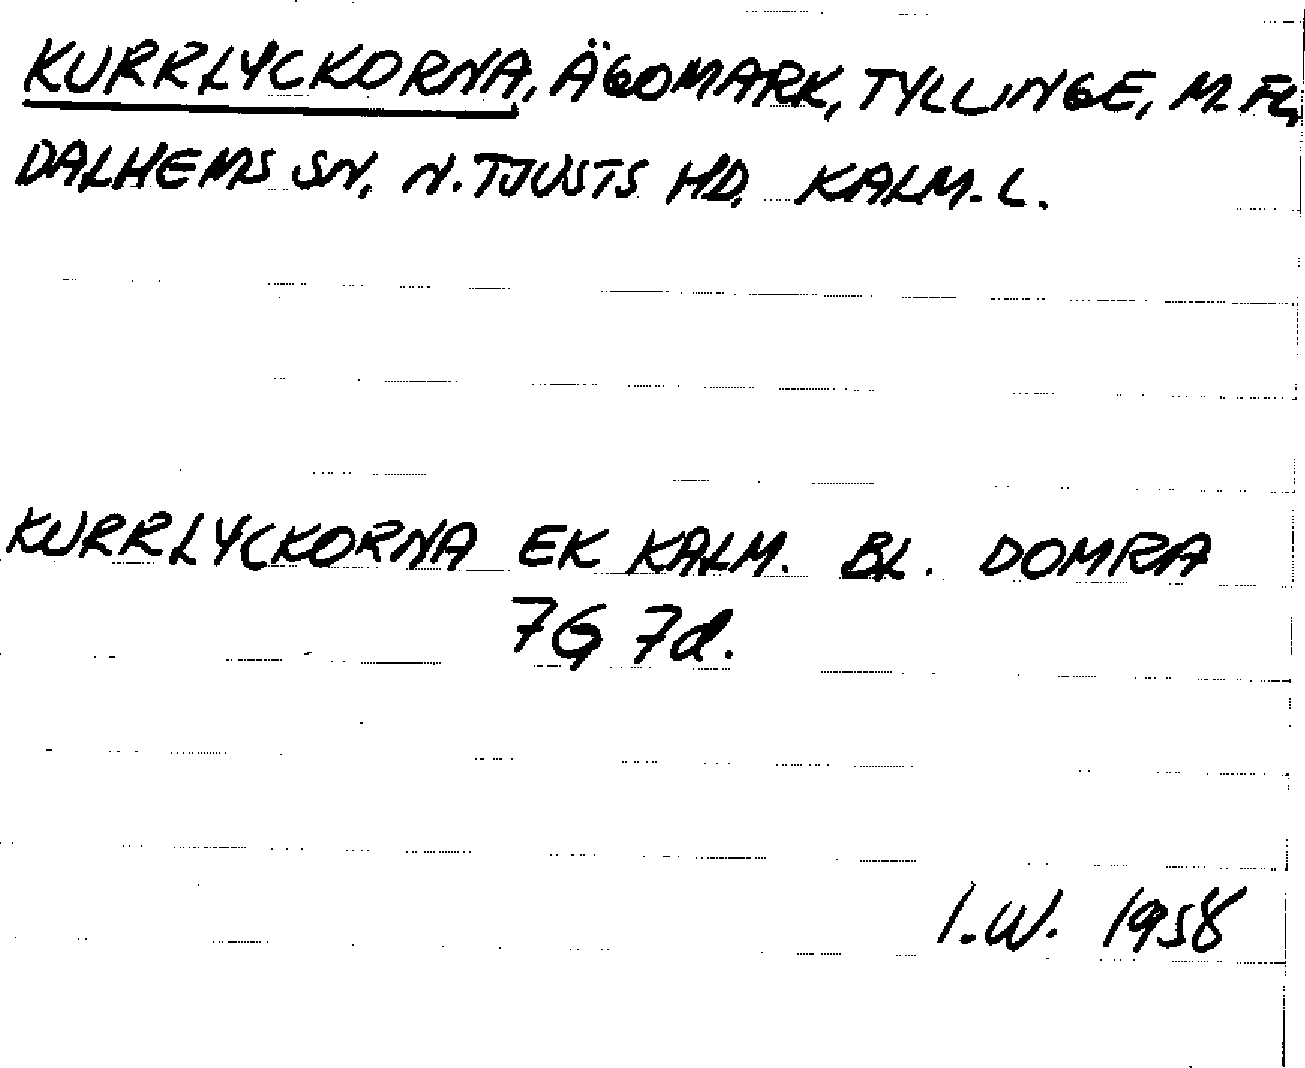 KURRLYCKORNA, ÄGOMARK, TYLLINGE, M. FL,
DALHEMS SN, N. TJUSTS HD, KALM. L.
KURRLYCKORNA EK KALM. BL. DOMRA
7G 7d.
I.W. 1958